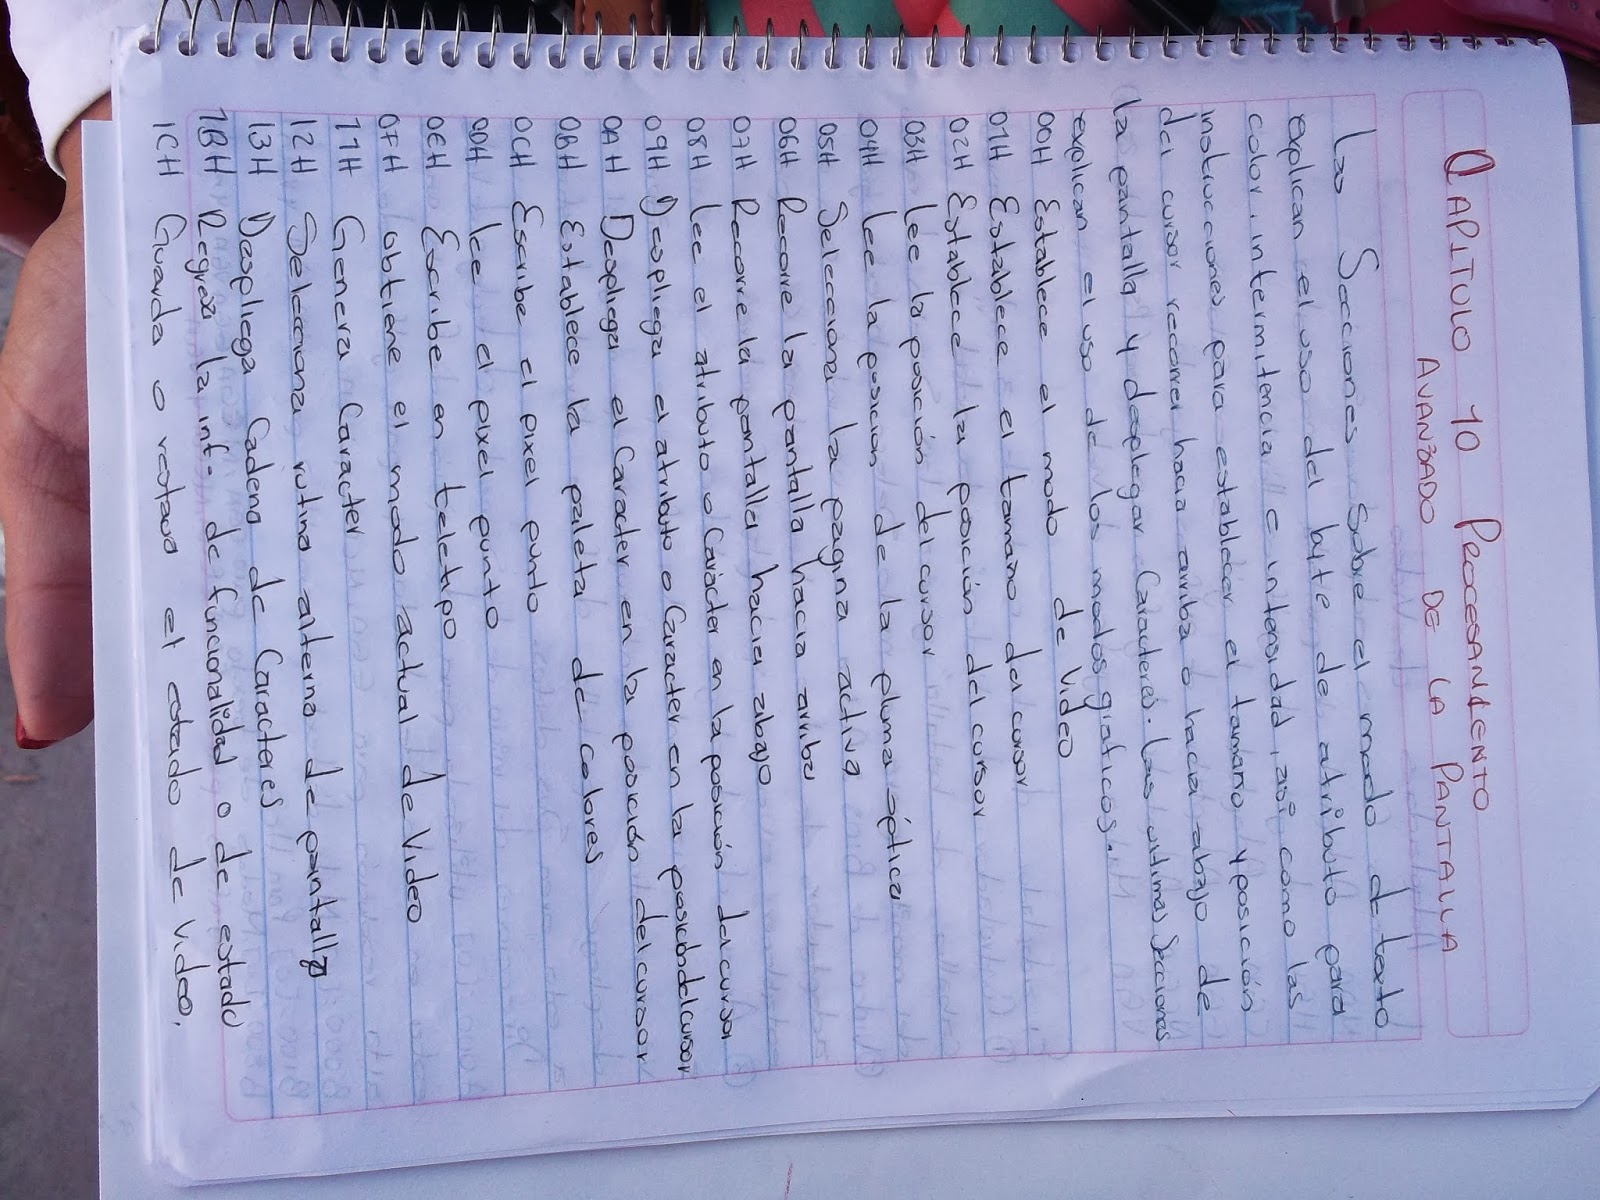 CAPITULO 10 PROCESAMIENTO
AVANZADO DE LA PANTALLA
Las Secciones sobre el modo de texto
explican el uso del byte de atributo para
color, intermitencia e intensidad, asi como las
instrucciones para establecer el tamano y posición
del cursor recorrer hacia arriba o hacia abajo de
la pantalla y desplegar Caracteres. las ultimas Secciones
explican el uso de los modos graficos.
00H Establece el modo de Video
01H Establece el tamano del cursor
02H Establece la posición del cursor
03H Lee la posición del cursor
04H Lee la posicion de la pluma óptica
05H Selecciona la pagina activa
06H Recorre la pantalla hacia arriba
07H Recorre la pantalla hacia abajo
08H Lee el atributo o Carácter en la posición del cursor
09H Despliega el atributo o Caracter en la posición del cursor
0AH Despliega el Caracter en la posición del cursor
0BH Establece la paleta de colores
0CH Escribe el pixel punto
0DH Lee el pixel punto
0EH Escribe en teletipo
0FH obtiene el modo actual de Video
11H Genera Caracter
12H Selecciona rutina alterna de pantalla
13H Despliega Cadena de Caracteres
1BH Regresa la inf. de funcionalidad o de estado
1CH Guarda o restaura el estado de Video.